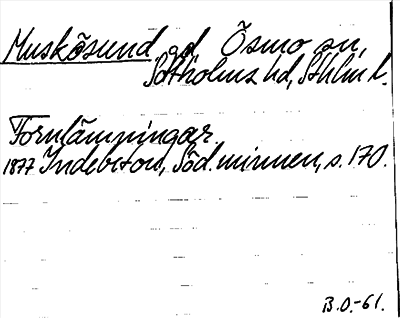 Muskösund gd, Ösmo sn,
Sotholms hd, Sthlm l.
Fornlämningar
1877 Indebetou, Söd.minnen, s. 170.
B.O.-61.